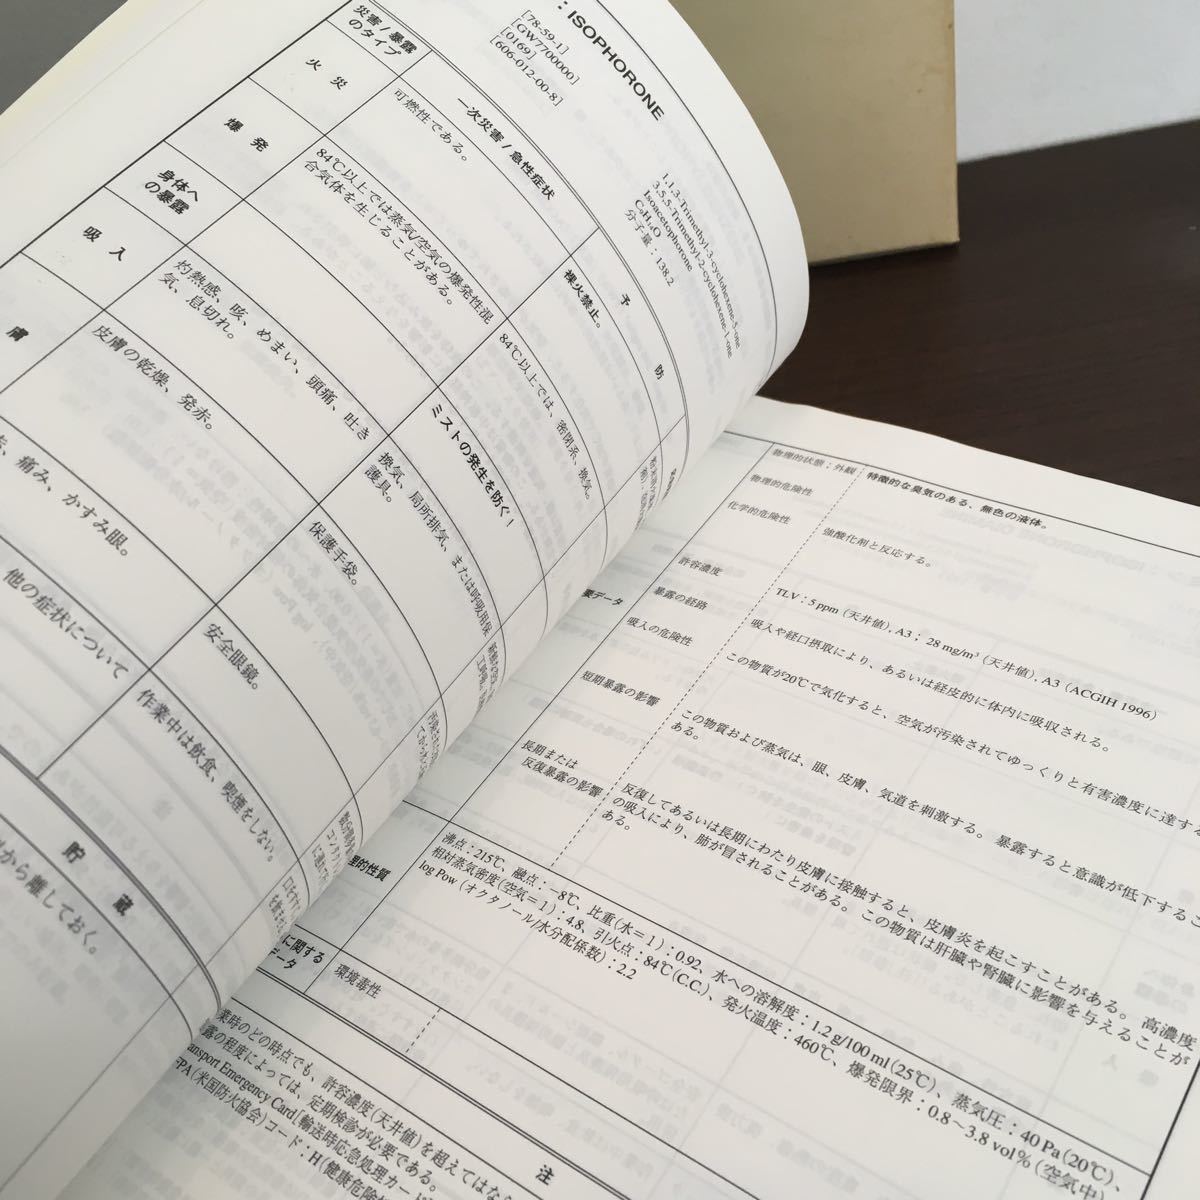 : ISOPHORONE
[78-59-1]
[GW7700000]
[0169]
[606-012-00-8]
1,1,3-Trimethyl-3-cyclohexene-5-one
3,5,5-Trimethyl-2-cyclohexene-1-one
Isoacetophorone
C₉H₁₄O
分子量：138.2
災害/暴露
のタイプ
一次災害/急性症状
予 防
火 災
可燃性である。
裸火禁止。
爆 発
84℃以上では蒸気/空気の爆発性混
合気体を生じることがある。
84℃以上では、密閉系、換気。
身体へ
の暴露
ミストの発生を防ぐ！
吸 入
灼熱感、咳、めまい、頭痛、吐き
気、息切れ。
換気、局所排気、または呼吸用保
護具。
膚
皮膚の乾燥、発赤。
保護手袋。
痛み、かすみ眼。
安全眼鏡。
作業中は飲食、喫煙をしない。
他の症状について
貯 蔵
から離しておく。
物理的状態；外観
特徴的な臭気のある、無色の液体。
物理的危険性
化学的危険性
強酸化剤と反応する。
許容濃度
TLV：5 ppm（天井値）, A3； 28 mg/m³（天井値）, A3（ACGIH 1996）
要データ
暴露の経路
吸入や経口摂取により、あるいは経皮的に体内に吸収される。
吸入の危険性
この物質が20℃で気化すると、空気が汚染されてゆっくりと有害濃度に達する
短期暴露の影響
この物質および蒸気は、眼、皮膚、気道を刺激する。 暴露すると意識が低下するこ
ある。
長期または
反復暴露の影響
反復してあるいは長期にわたり皮膚に接触すると、皮膚炎を起こすことがある。 高濃度
の吸入により、肺が冒されることがある。 この物質は肝臓や腎臓に影響を与えることが
ある。
理的性質
沸点：215℃、融点：−8℃、比重(水＝1)：0.92、水への溶解度：1.2 g/100 ml(25℃)、蒸気圧：40 Pa(20℃)、
相対蒸気密度(空気＝1)：4.8、引火点：84℃(C.C.)、発火温度：460℃、爆発限界：0.8～3.8 vol％(空気中)
log Pow (オクタノール/水分配係数)：2.2
に関する
データ
環境毒性
注
業時のどの時点でも、許容濃度(天井値)を超えてはなら
露の程度によっては、定期検診が必要である。
ransport Emergency Card[輸送時応急処理カード
FPA(米国防火協会)コード：H(健康危険